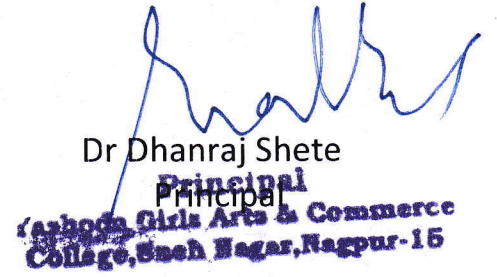 Dr Dhanraj Shete
Principal
Principal
Yashoda Girls Arts & Commerce
College, Sneh Nagar, Nagpur-15